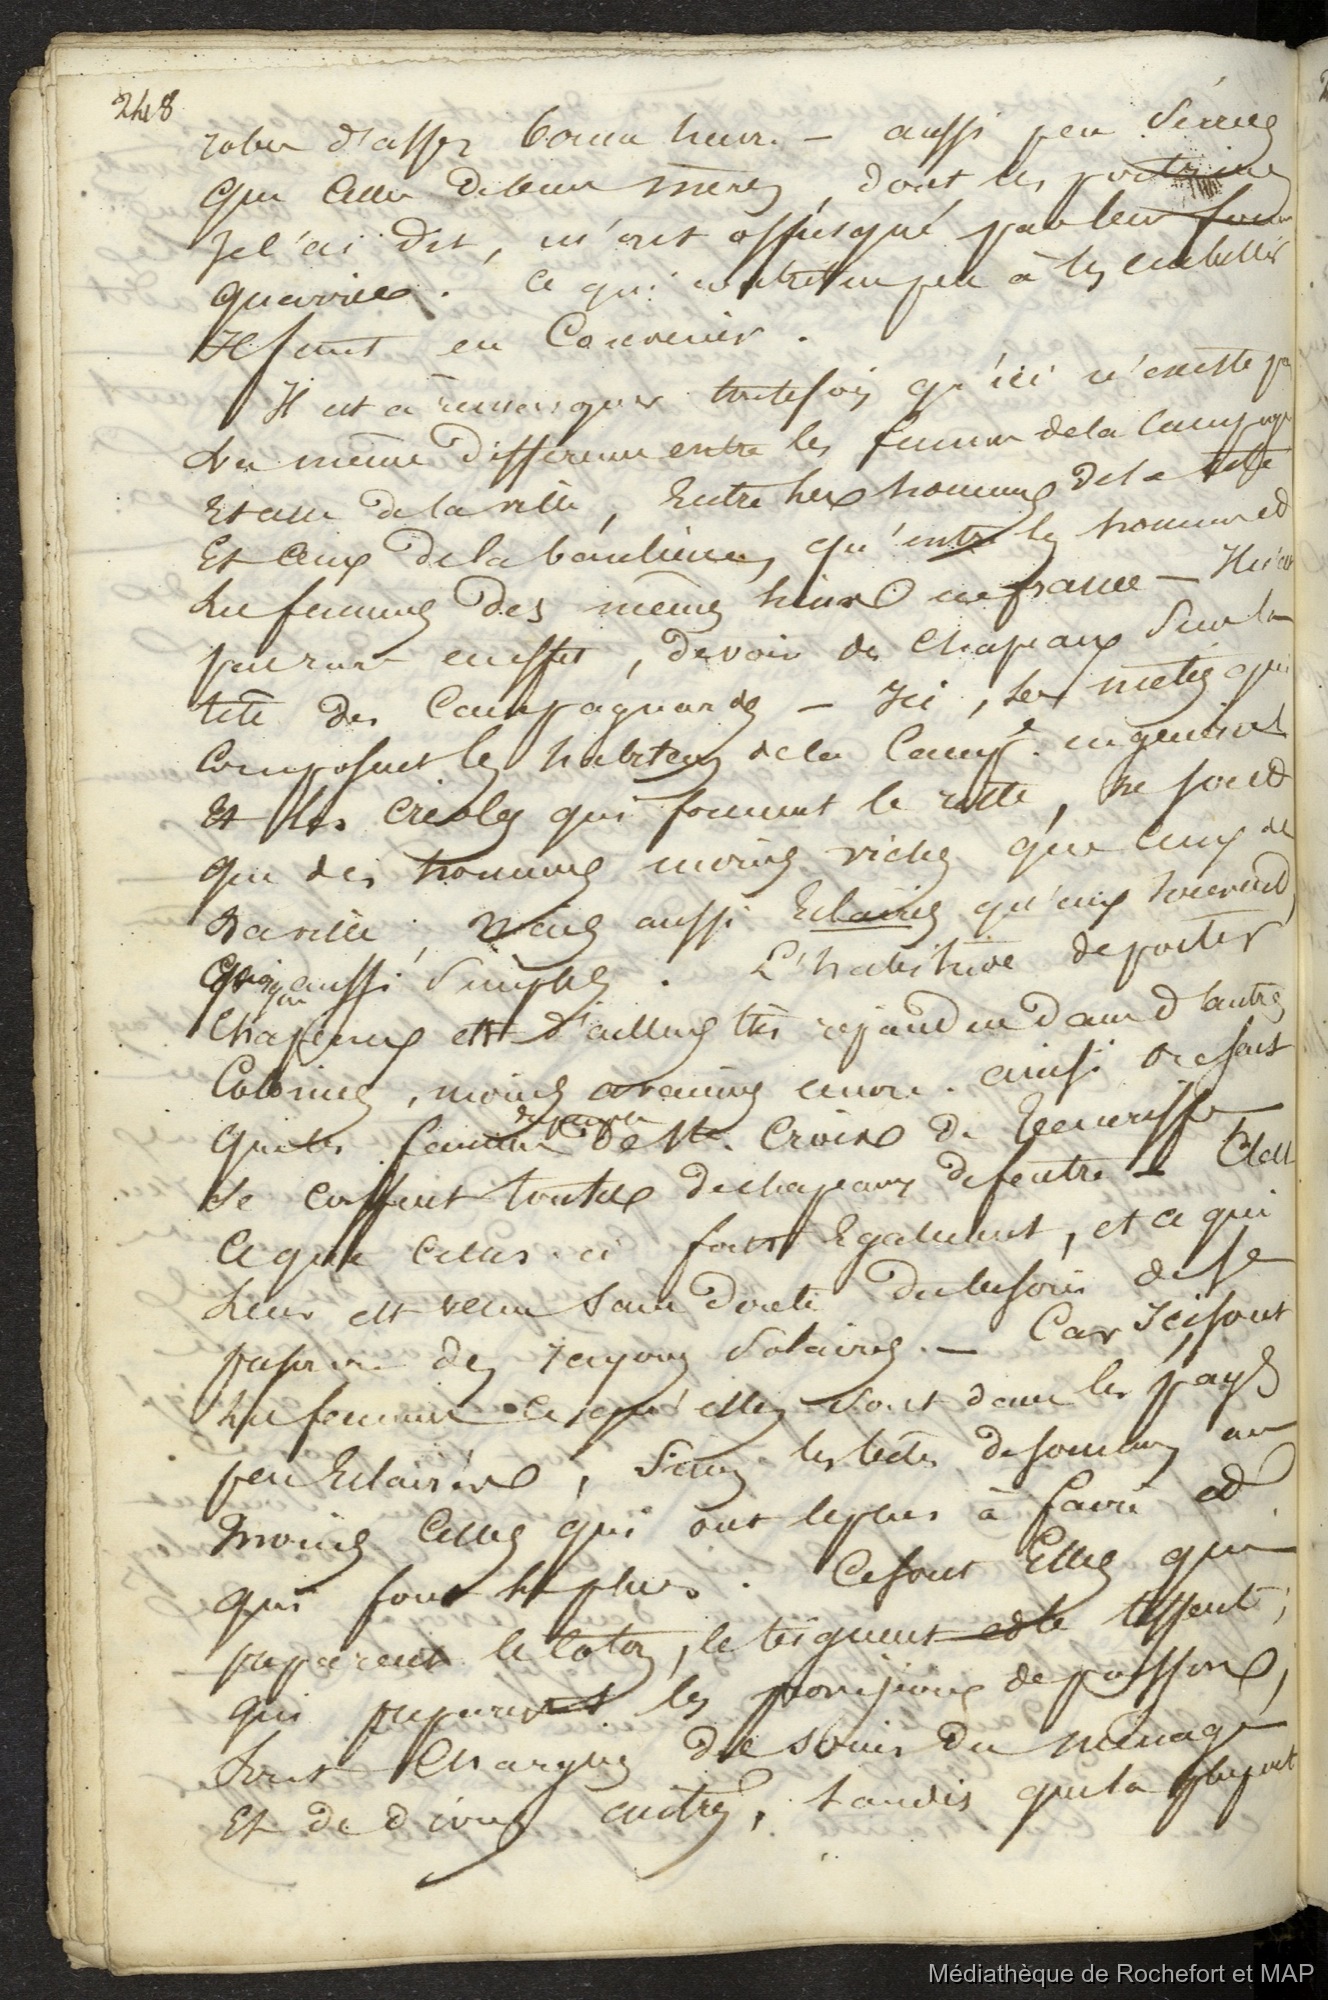 248
robes d'assez bonne heure. — aussi peu serrées
que celles de leurs mères, dont les poitrines
je l'ai dit, m'ont offusqué par leur forme
guerrière. ce qui contrib un peu à les embellir
Il faut en convenir.
Il est à remarquer toutefois qu'ici n'existe pas
la même différence entre les femmes de la campagne
Et celles de la ville, Entre les hommes de la ville
Et ceux de la banlieue, qu'entre les hommes et
les femmes des mêmes lieux en france —
peu rare en effet, de voir des chapeaux sur la
tête des Campagnardes — Ici, les métis qui
composent les habitans de la Campe. en général
Et les créoles qui forment le reste, ne sont
que des hommes moins riches que ceux de
la ville, mais aussi Eclairés qu'eux souvent,
quoique aussi simples. L'habitude de porter
chapeaux est d'ailleurs très répandue dans d'autres
Colonies, moins avancées encore. ainsi on sait
que les femmes de Ste. Croix de Teneriffe
se coiffent toutes de chapeaux de feutre — C'est
ce que celles-ci font Egalement, et ce qui
leur est venu sans doute du besoin de se
préserver des rayons solaires. — Car Ici sont
les femmes ce qu'elles sont dans les pays
peu Eclairés, Sinon les bêtes de somme, au
moins celles qui ont le plus à faire et
qui font le plus. Ce sont Elles qui
préparent le coton, le teignent et le tissent;
qui préparent les provisions de poissons,
sont chargées des soins du ménage
Et de divers autres, tandis que la plupart
Médiathèque de Rochefort et MAP